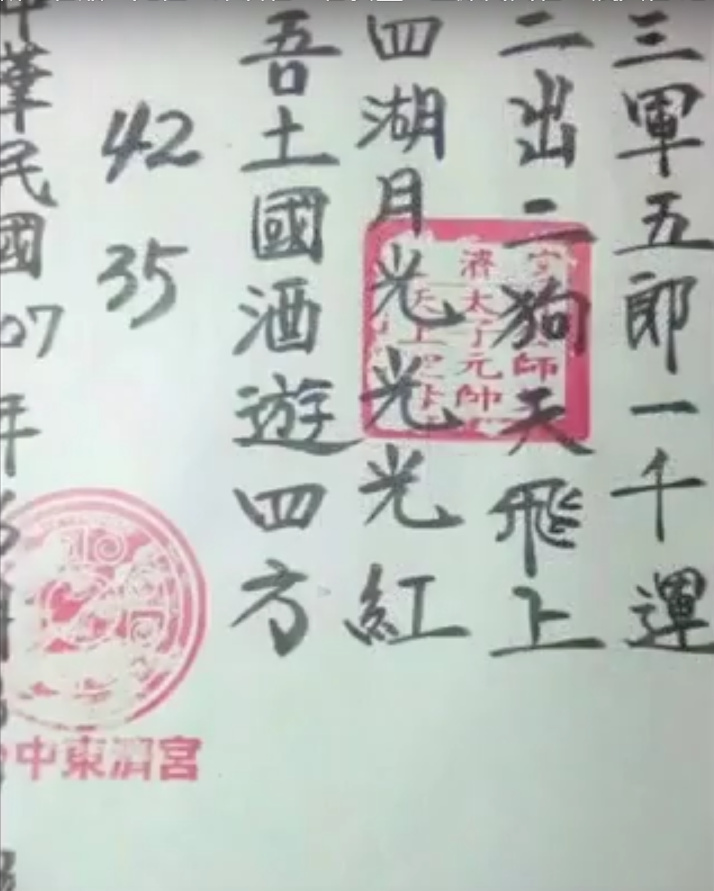 三軍五郎一千運
二出二狗天飛上
四湖月光光光紅
吾土國酒遊四方
42
35
中華民國07年
師
濟太子元帥
天上
中東濟宮